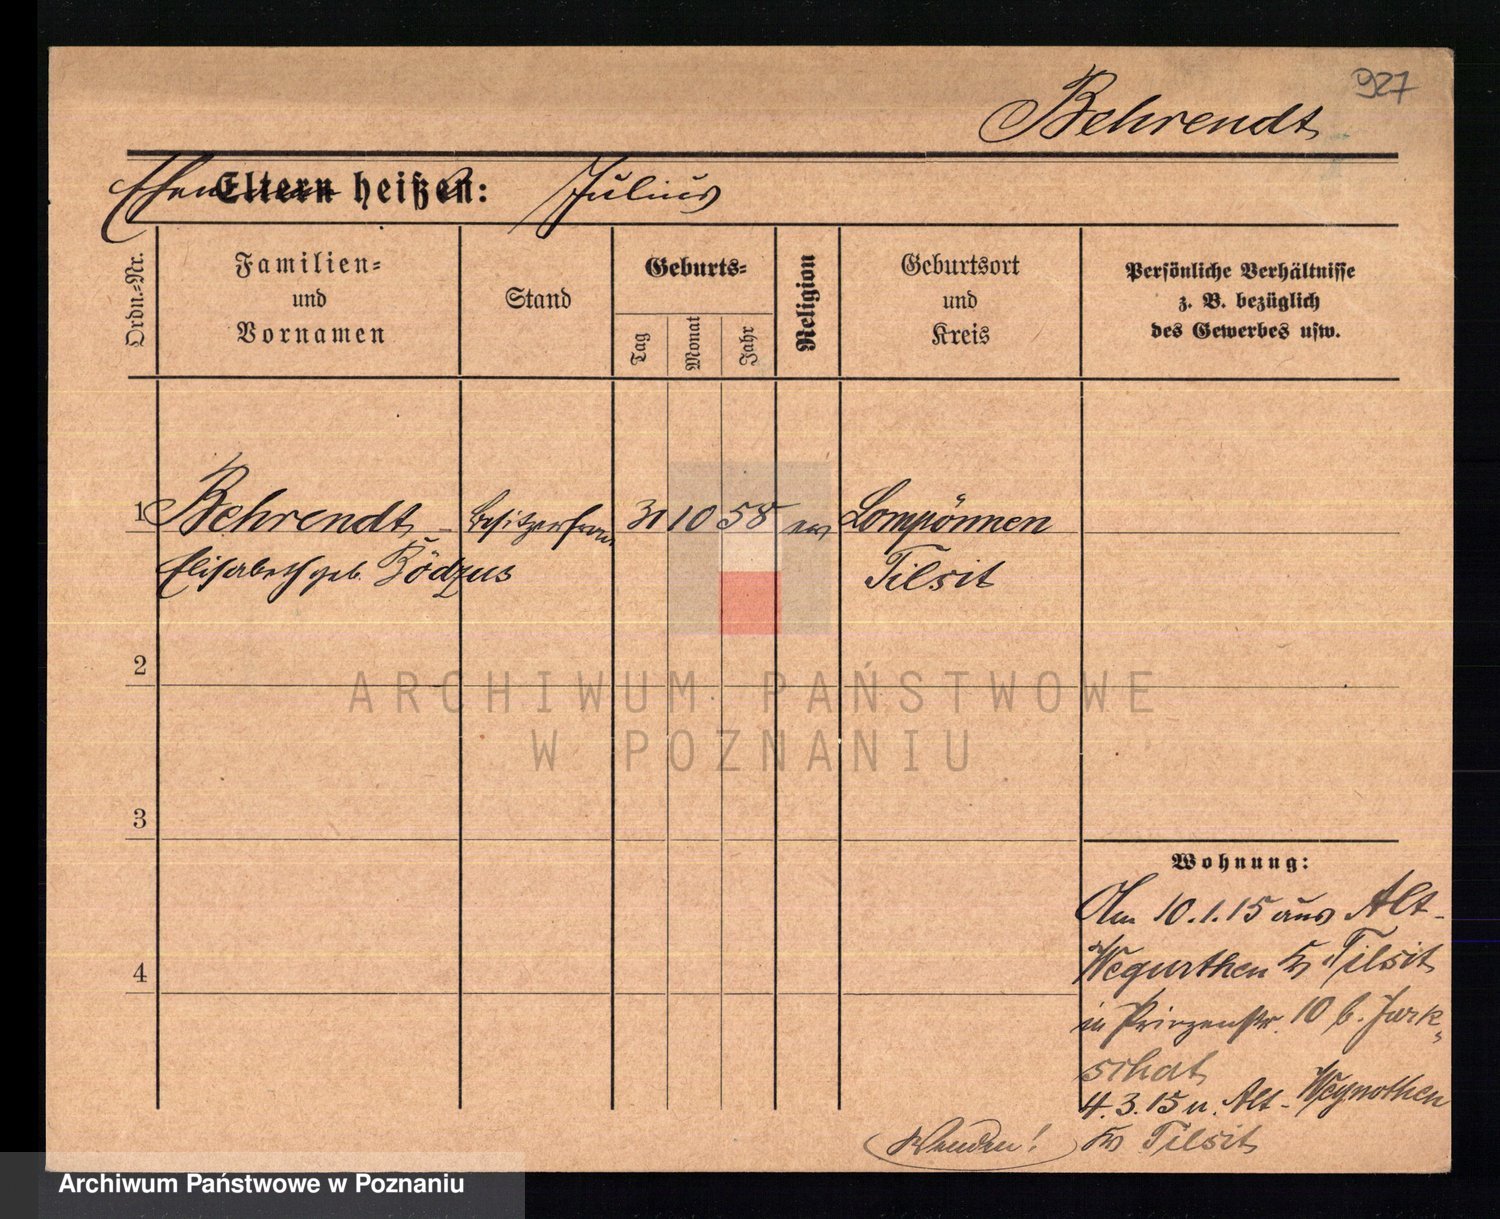 927
Behrendt
Eltern heißen: Julius
Ordn.-Nr.
Familien-
und
Vornamen
Stand
Geburts-
Tag
Monat
Jahr
Religion
Geburtsort
und
Kreis
Persönliche Verhältnisse
z. B. bezüglich
des Gewerbes usw.
1 Behrendt - Besitzerfrau 31 10 58 ev Lompönnen
Elisabeth geb. Bödzus Tilsit
2
ARCHIWUM PAŃSTWOWE
W POZNANIU
3
Wohnung:
Am 10.1.15 aus Alt-
Kr Tilsit
4
in Prinzenstr. 10 b. Jurk-
schat
4.3.15 n. Alt-Weynothen
Kr Tilsit
Wenden!
Archiwum Państwowe w Poznaniu